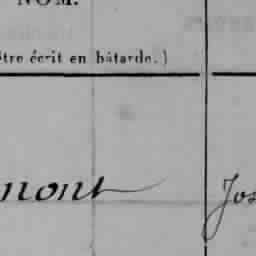 NOM.
être écrit en bâtarde.)
mont Jos